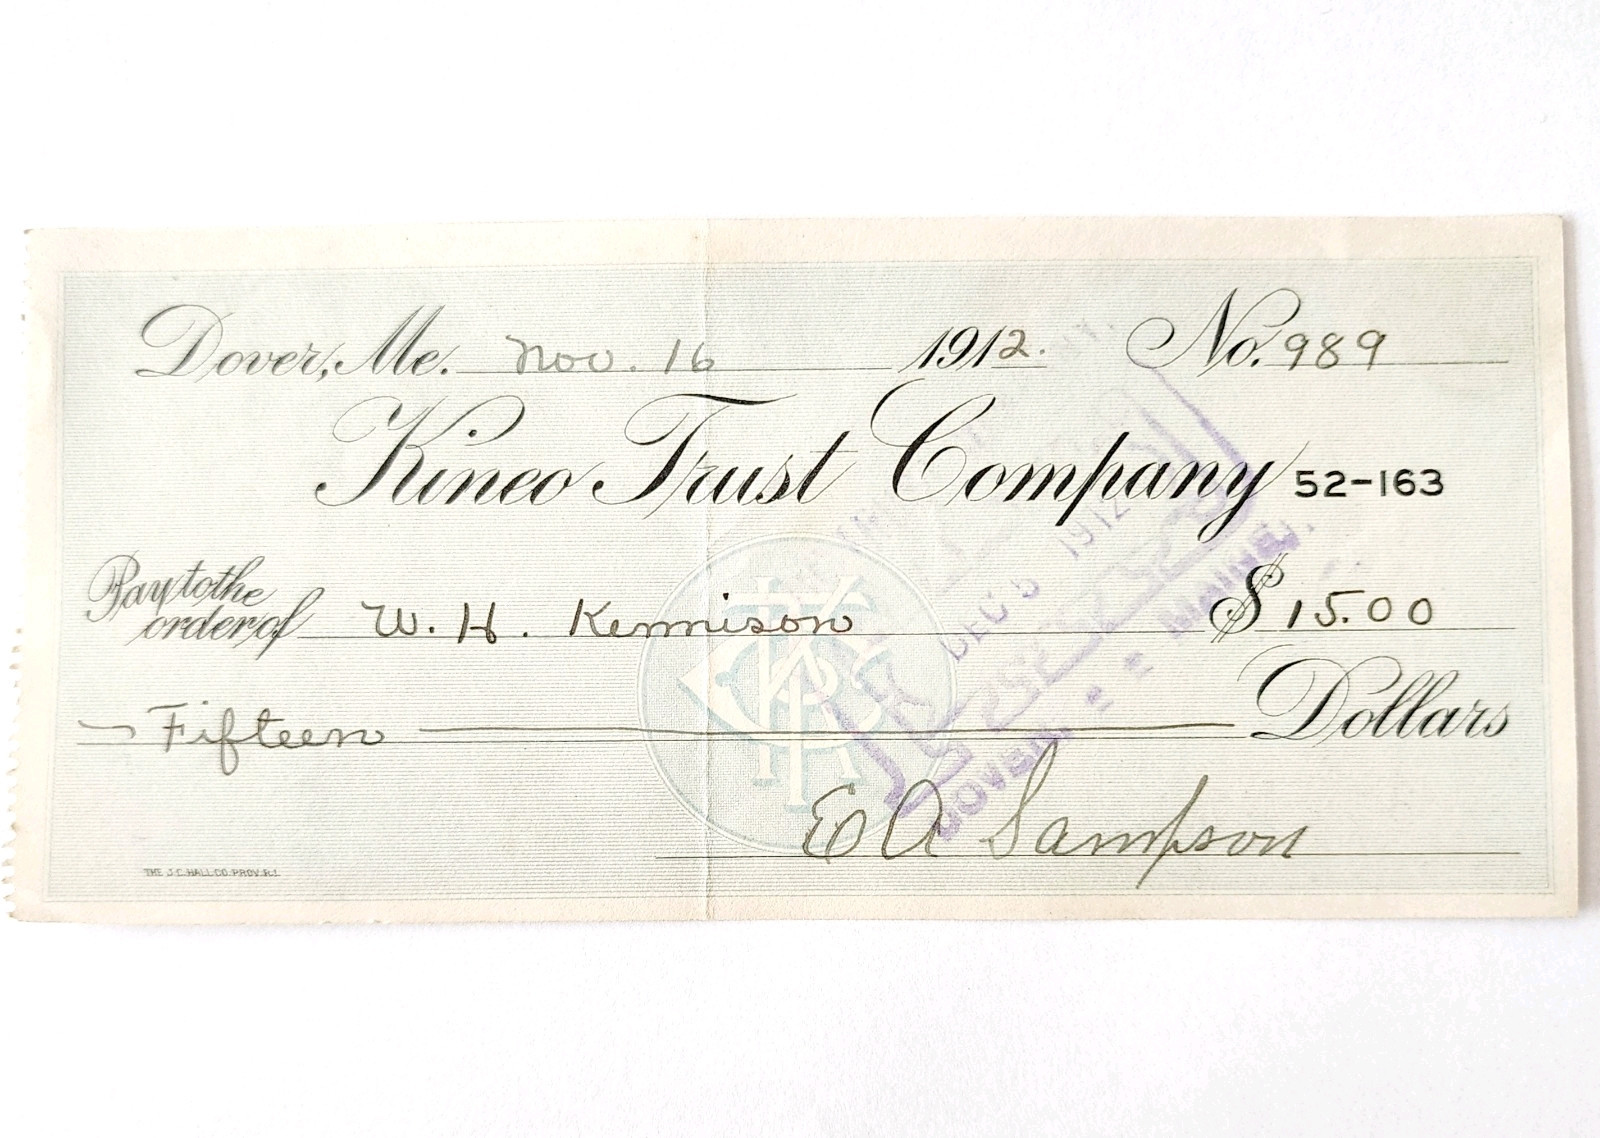 Dover, Me. Nov. 16 1912. No. 989
Kineo Trust Company 52-163
Pay to the
order of W. H. Kennison $ 15.00
Fifteen Dollars
E A Sampson
THE J.C. HALL CO. PROV. R.I.
DEC 5 1912
PAID
Dover, Maine.